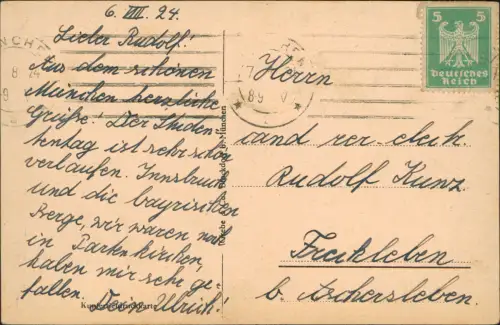 6. VIII. 24.
Lieber Rudolf!
Aus dem schönen
München herzliche
Grüße! Der Studen
tentag ist sehr schön
verlaufen. Innsbruck
und die bayrischen
Berge, wir waren noch
in Partenkirchen,
haben mir sehr ge-
fallen. Dein Ulrich!
Herrn
cand rer. elect.
Rudolf Kunz
Freckleben
b. Aschersleben.
5 5
Deutsches
Reich